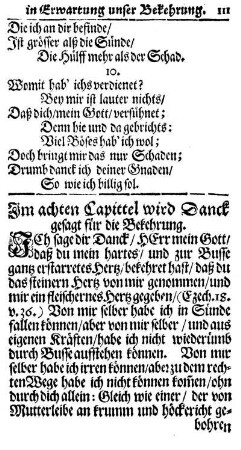 in Erwartung unser Bekehrung. 111
Die ich an dir befinde/
Ist grösser alß die Sünde/
Die Hülff mehr als der Schad.
10.
Womit hab' ichs verdienet?
Bey mir ist lauter nichts/
Daß dich/mein Gott/versühnet;
Denn hie und da gebrichts:
Viel Böses hab' ich wol;
Doch bringt mir das nur Schaden;
Drumb danck ich deiner Gnaden/
So wie ich billig sol.
Im achten Capittel wird Danck
gesagt für die Bekehrung.
ICh sage dir Danck/ HErr mein Gott/
daß du mein hartes/ und zur Busse
gantz erstarretes Hertz/bekehret hast/ daß du
das steinern Hertz von mir genommen/und
mir ein fleischernes Hertz gegeben/(Ezech.18.
v.36.) Von mir selber habe ich in Sünde
fallen können/aber von mir selber/ und aus
eigenen Kräfften/habe ich nicht wiederümb
durch Busse aufstehen können. Von mir
selber habe ich irren können/aber zu dem rech-
ten Wege habe ich nicht können kom̃en/ohn
durch dich allein: Gleich wie einer/ der von
Mutterleibe an krumm und höckericht ge-
bohren